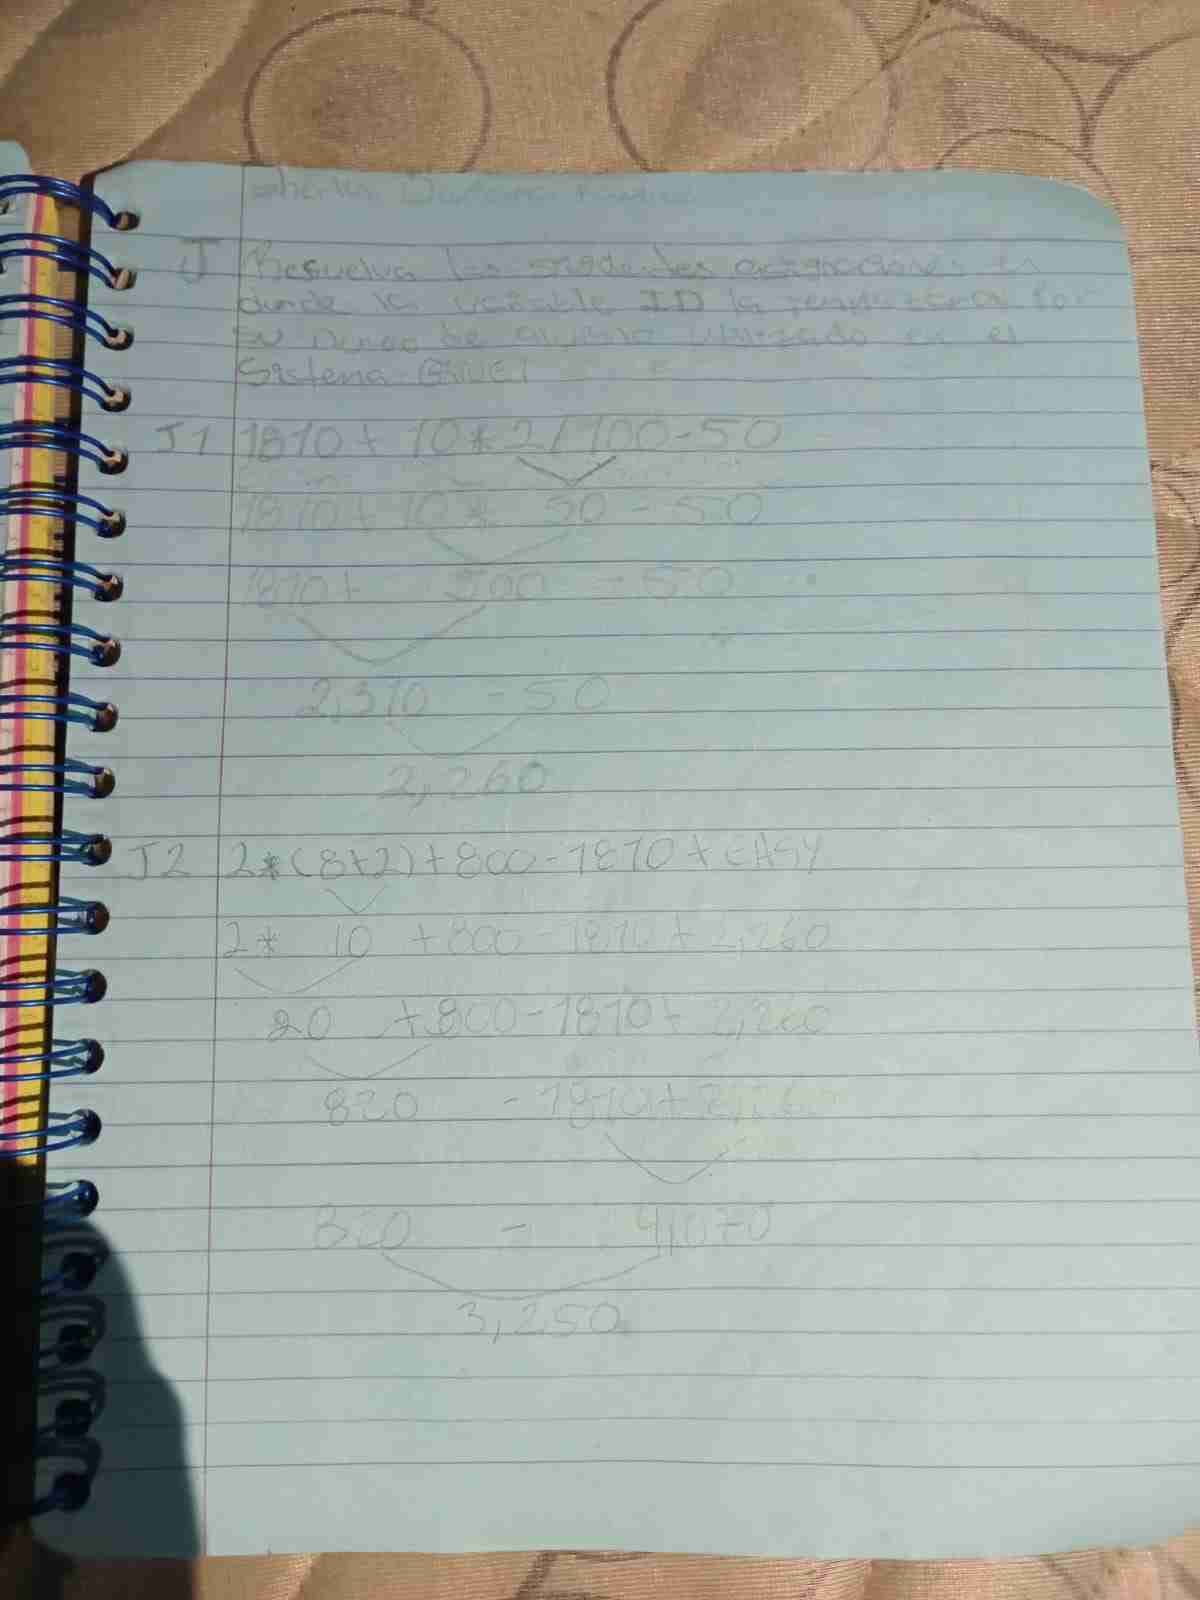 J Resuelva las siguientes asignaciones en
donde la variable ID la reemplazara por
su numero de alumno utilizado en el
Sistema
J1 1810 + 10 * 2 / 100 - 50
1810 + 10 * 50 - 50
1810 + 500 - 50
2,310 - 50
2,260
J2 2 * (8+2) + 800 - 1810 + EASY
2 * 10 + 800 - 1810 + 2,260
20 + 800 - 1810 + 2,260
820 - 1810 + 2,260
820 - 4,070
3,250